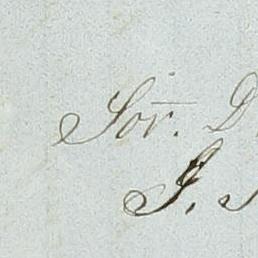 Sor. D
J.